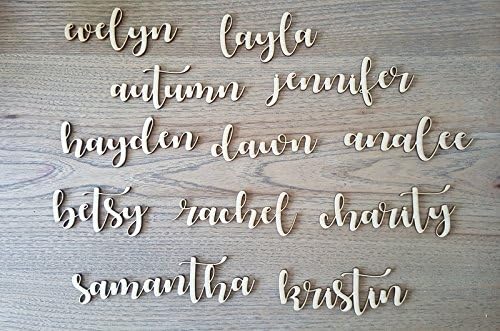 evelyn layla
autumn jennifer
hayden dawn analee
betsy rachel charity
samantha kristin